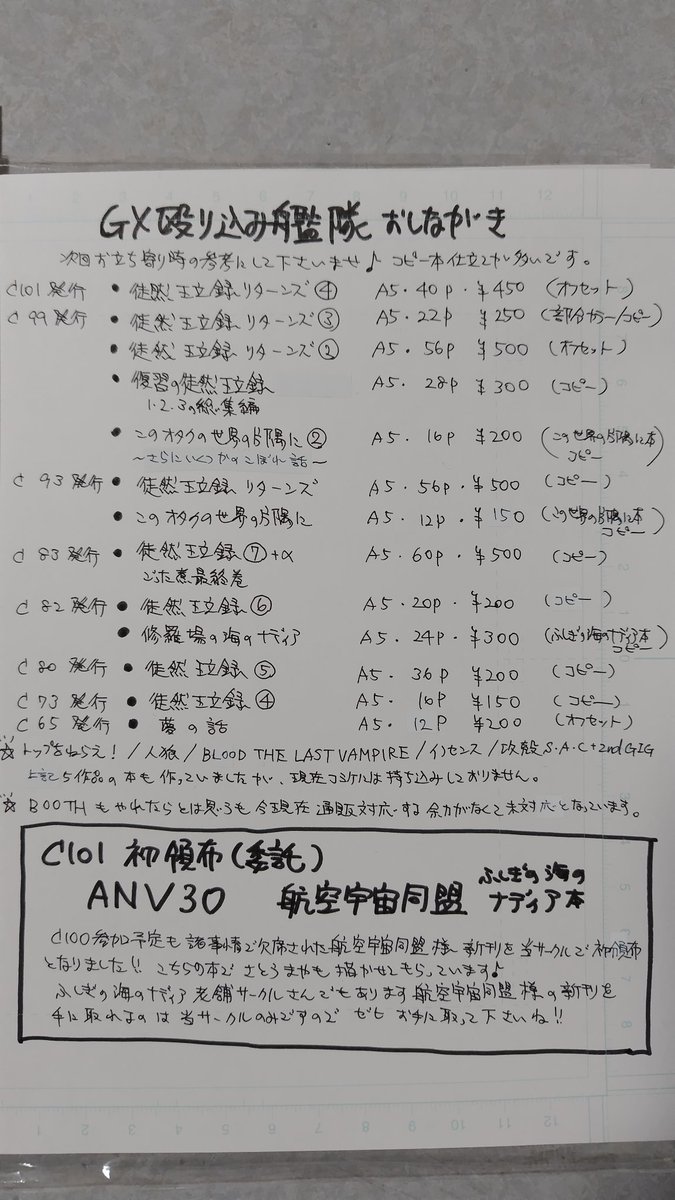 GX殴り込み艦隊 おしながき
次回お立ち寄り時の参考にして下さいませ♪ コピー本仕立てが多いです。
C101発行 ・徒然王立録リターンズ④ A5・40p・¥450 (オフセット)
C99発行 ・徒然王立録リターンズ③ A5・22p ¥250 (部分カラー/コピー)
・徒然王立録リターンズ② A5・56p ¥500 (オフセット)
・復習の徒然王立録 A5・28p ¥300 (コピー)
1・2・3の総集編
・このオタクの世界の片隅に② A5・16p ¥200 (この世界の片隅に本 コピー)
〜さらにいくつかのこぼれ話〜
C93発行 ・徒然王立録リターンズ A5・56p・¥500 (コピー)
・このオタクの世界の片隅に A5・12p・¥150 (この世界の片隅に本 コピー)
C83発行 ・徒然王立録⑦+α A5・60p・¥500 (コピー)
ごった煮最終巻
C82発行 ・徒然王立録⑥ A5・20p・¥200 (コピー)
・修羅場の海のナディア A5・24p・¥300 (ふしぎの海のナディア本 コピー)
C80発行 ・徒然王立録⑤ A5・36p ¥200 (コピー)
C73発行 ・徒然王立録④ A5・16p ¥150 (コピー)
C65発行 ・夢の話 A5・12P ¥200 (オフセット)
☆トップをねらえ!/人狼/BLOOD THE LAST VAMPIRE/イノセンス/攻殻S.A.C+2nd GIG
上記5作品の本も作っていましたが、現在コミケには持ち込みしておりません。
☆BOOTHもやれたらとは思うも今現在通販対応する余力がなくて未対応となっています。
C101 初頒布(委託)
ANV30 航空宇宙同盟 ふしぎの海のナディア本
C100参加予定も諸事情で欠席された航空宇宙同盟様 新刊を当サークルで初頒布
となりました!! こちらの本でさとうまやも描かせてもらっています♪
ふしぎの海のナディア老舗サークルさんでもあります航空宇宙同盟様の新刊を
手に取れるのは当サークルのみですので ぜひお手に取って下さいね!!